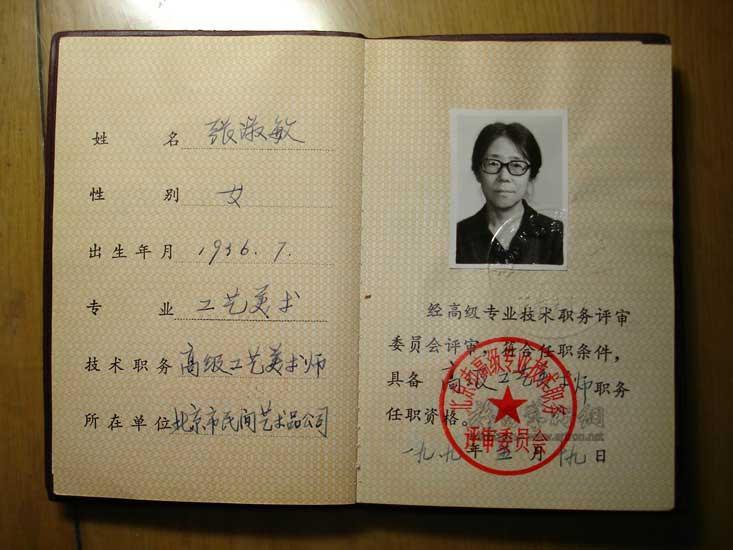 姓 名 张淑敏
性 别 女
出生年月 1936.7.
专 业 工艺美术
技术职务 高级工艺美术师
所在单位 北京市民间艺术品公司
经高级专业技术职务评审
委员会评审，符合任职条件，
具备 高级工艺美术师 职务
任职资格。
北京市高级专业技术职务
评审委员会
年 五 月 十九 日